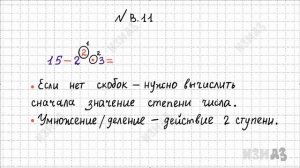 № В.11
1 2
15 - 2² · 3 =
• Если нет скобок – нужно вычислить
сначала значение степени числа.
• Умножение/деление – действие 2 ступени.